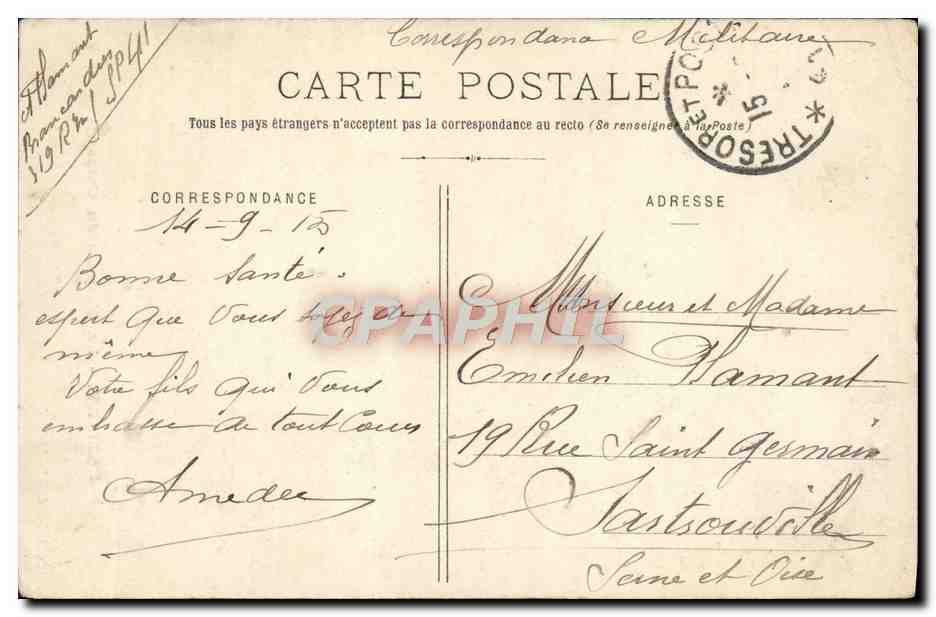 Correspondance Militaire
A Hamant
Brancardier
319 R I SP 41
CARTE POSTALE
Tous les pays étrangers n'acceptent pas la correspondance au recto (Se renseigner à la Poste)
TRESOR ET PO
15
CORRESPONDANCE
14-9-15
Bonne Santé.
espert que Vous soyez de
même
Votre fils qui Vous
embrasse de tout Coeur
Amedee
ADRESSE
Monsieur et Madame
Emilien Hamant
19 Rue Saint Germain
Sartrouville
Seine et Oise
CPAPHIL